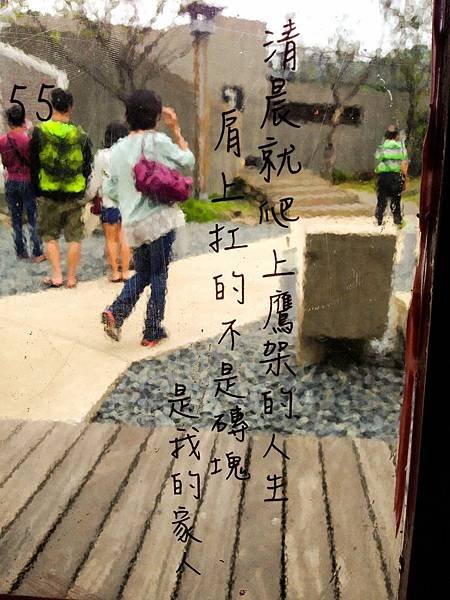 清晨就爬上鷹架的人生
肩上扛的不是磚塊
是我的家人
55